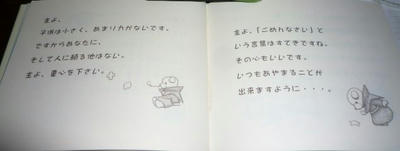 主よ、
子供は小さく、あまり力がないです。
ですからあなたに、
そして人に頼る他はない。
主よ、童心を下さい。
主よ、「ごめんなさい」と
いう言葉はすてきですね。
その心もいいです。
いつもあやまることが
出来ますように・・・。